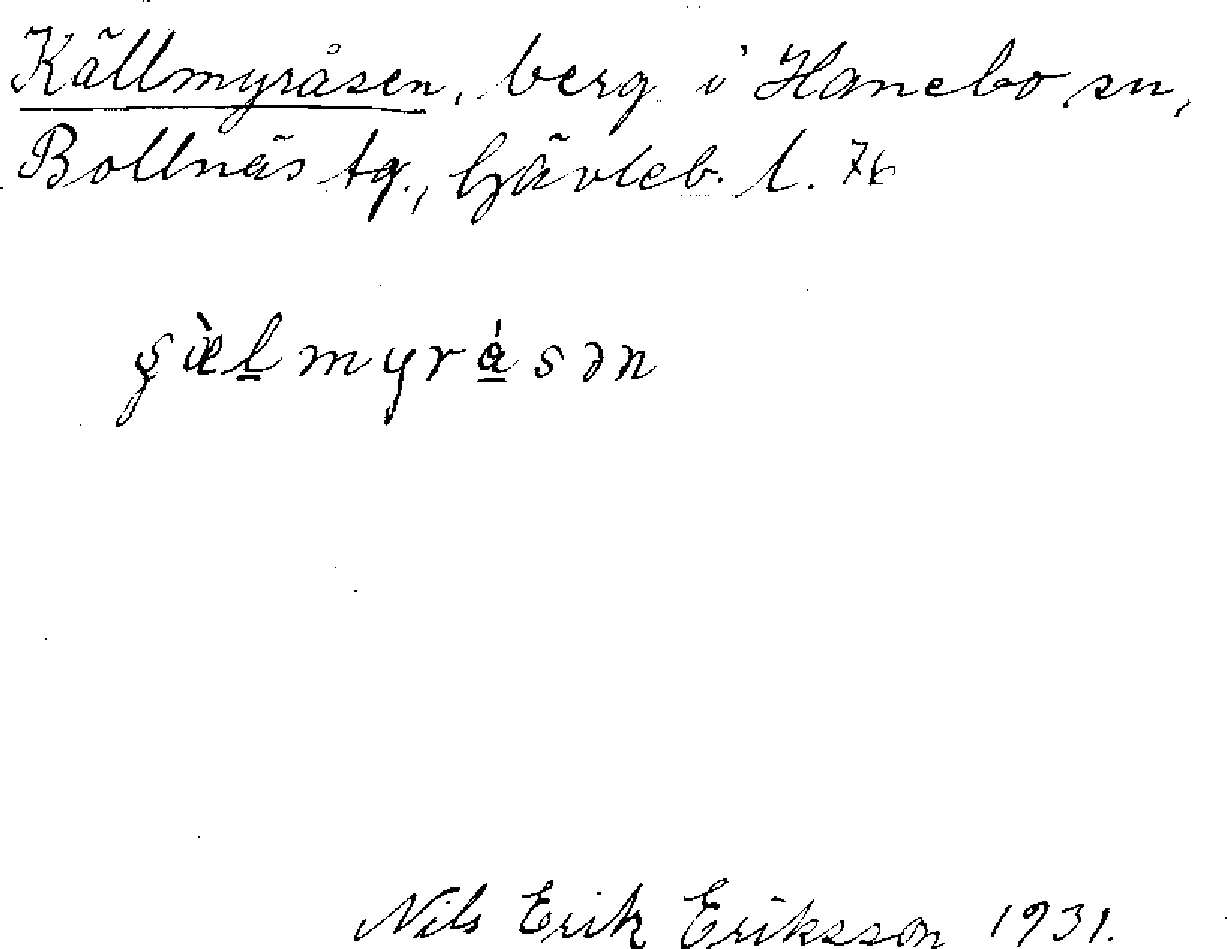 Källmyråsen, berg i Hanebo sn,
Bollnäs tg., Gävleb. l. 76
ʂæ̀l̲myrá̲sən
Nils Erik Eriksson 1931.